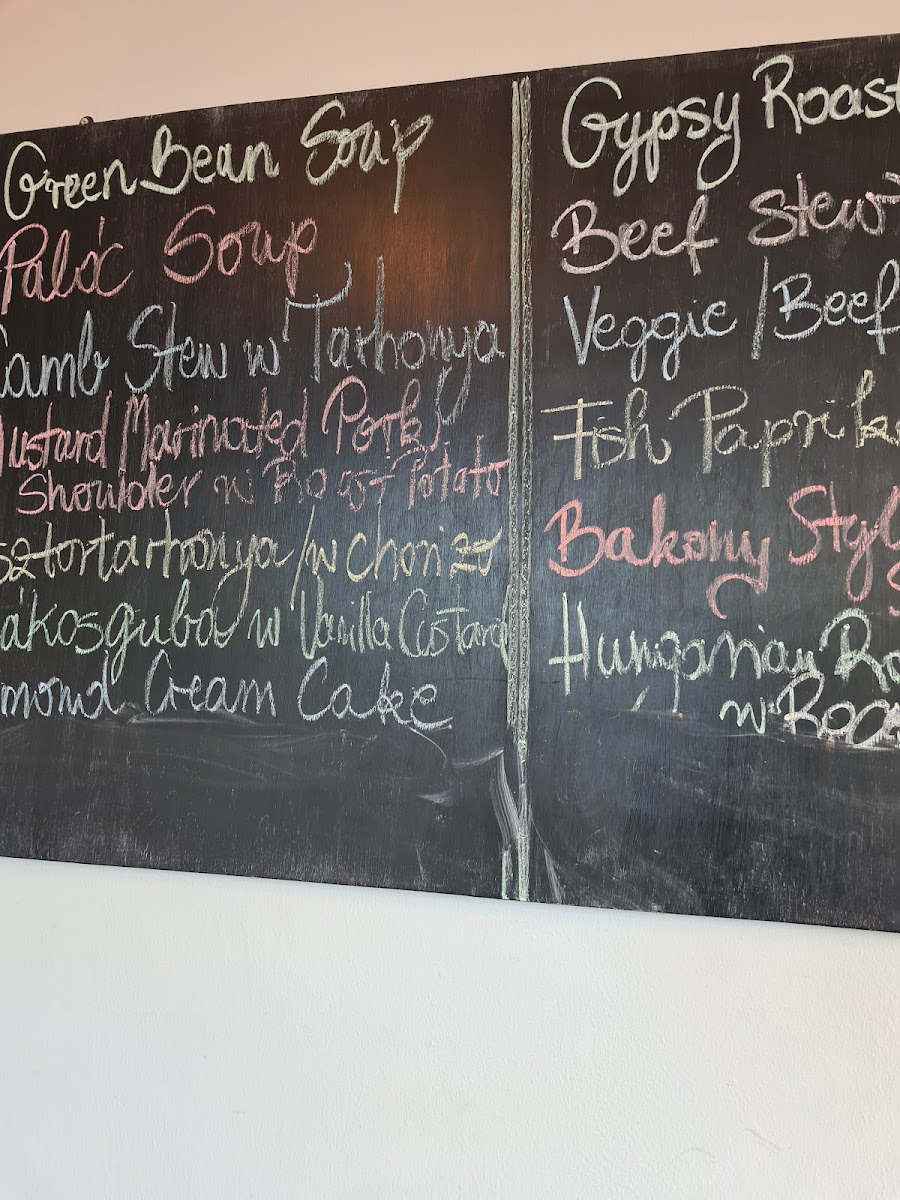 Green Bean Soup
Palóc Soup
Lamb Stew w Tarhonya
Mustard Marinated Pork
Shoulder w Roast Potato
sztortarhonya/w chorizo
ákosguba w Vanilla Custard
mond Cream Cake
Gypsy Roast
Beef Stew
Veggie / Beef
Fish Paprik
Bakony Style
Hungarian Ro
w Roas